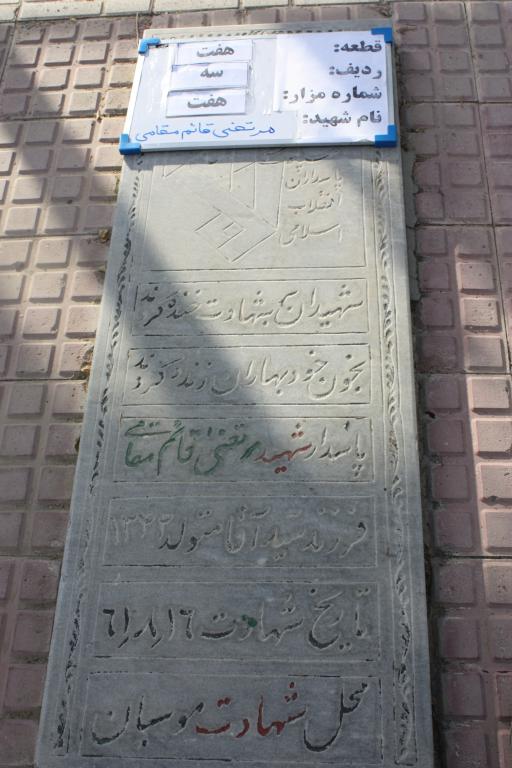 قطعه: هفت
ردیف: سه
شماره مزار: هفت
نام شهید: مرتضی قائم مقامی
سپاه
پاسداران
انقلاب
اسلامی
شهیدان به شهادت خنده کردند
بخون خود بهاران زنده کردند
پاسدار شهید مرتضی قائم مقامی
فرزند سید آقا متولد ۱۳۴۲
تاریخ شهادت ۶۱٫۸٫۱۶
محل شهادت موسیان